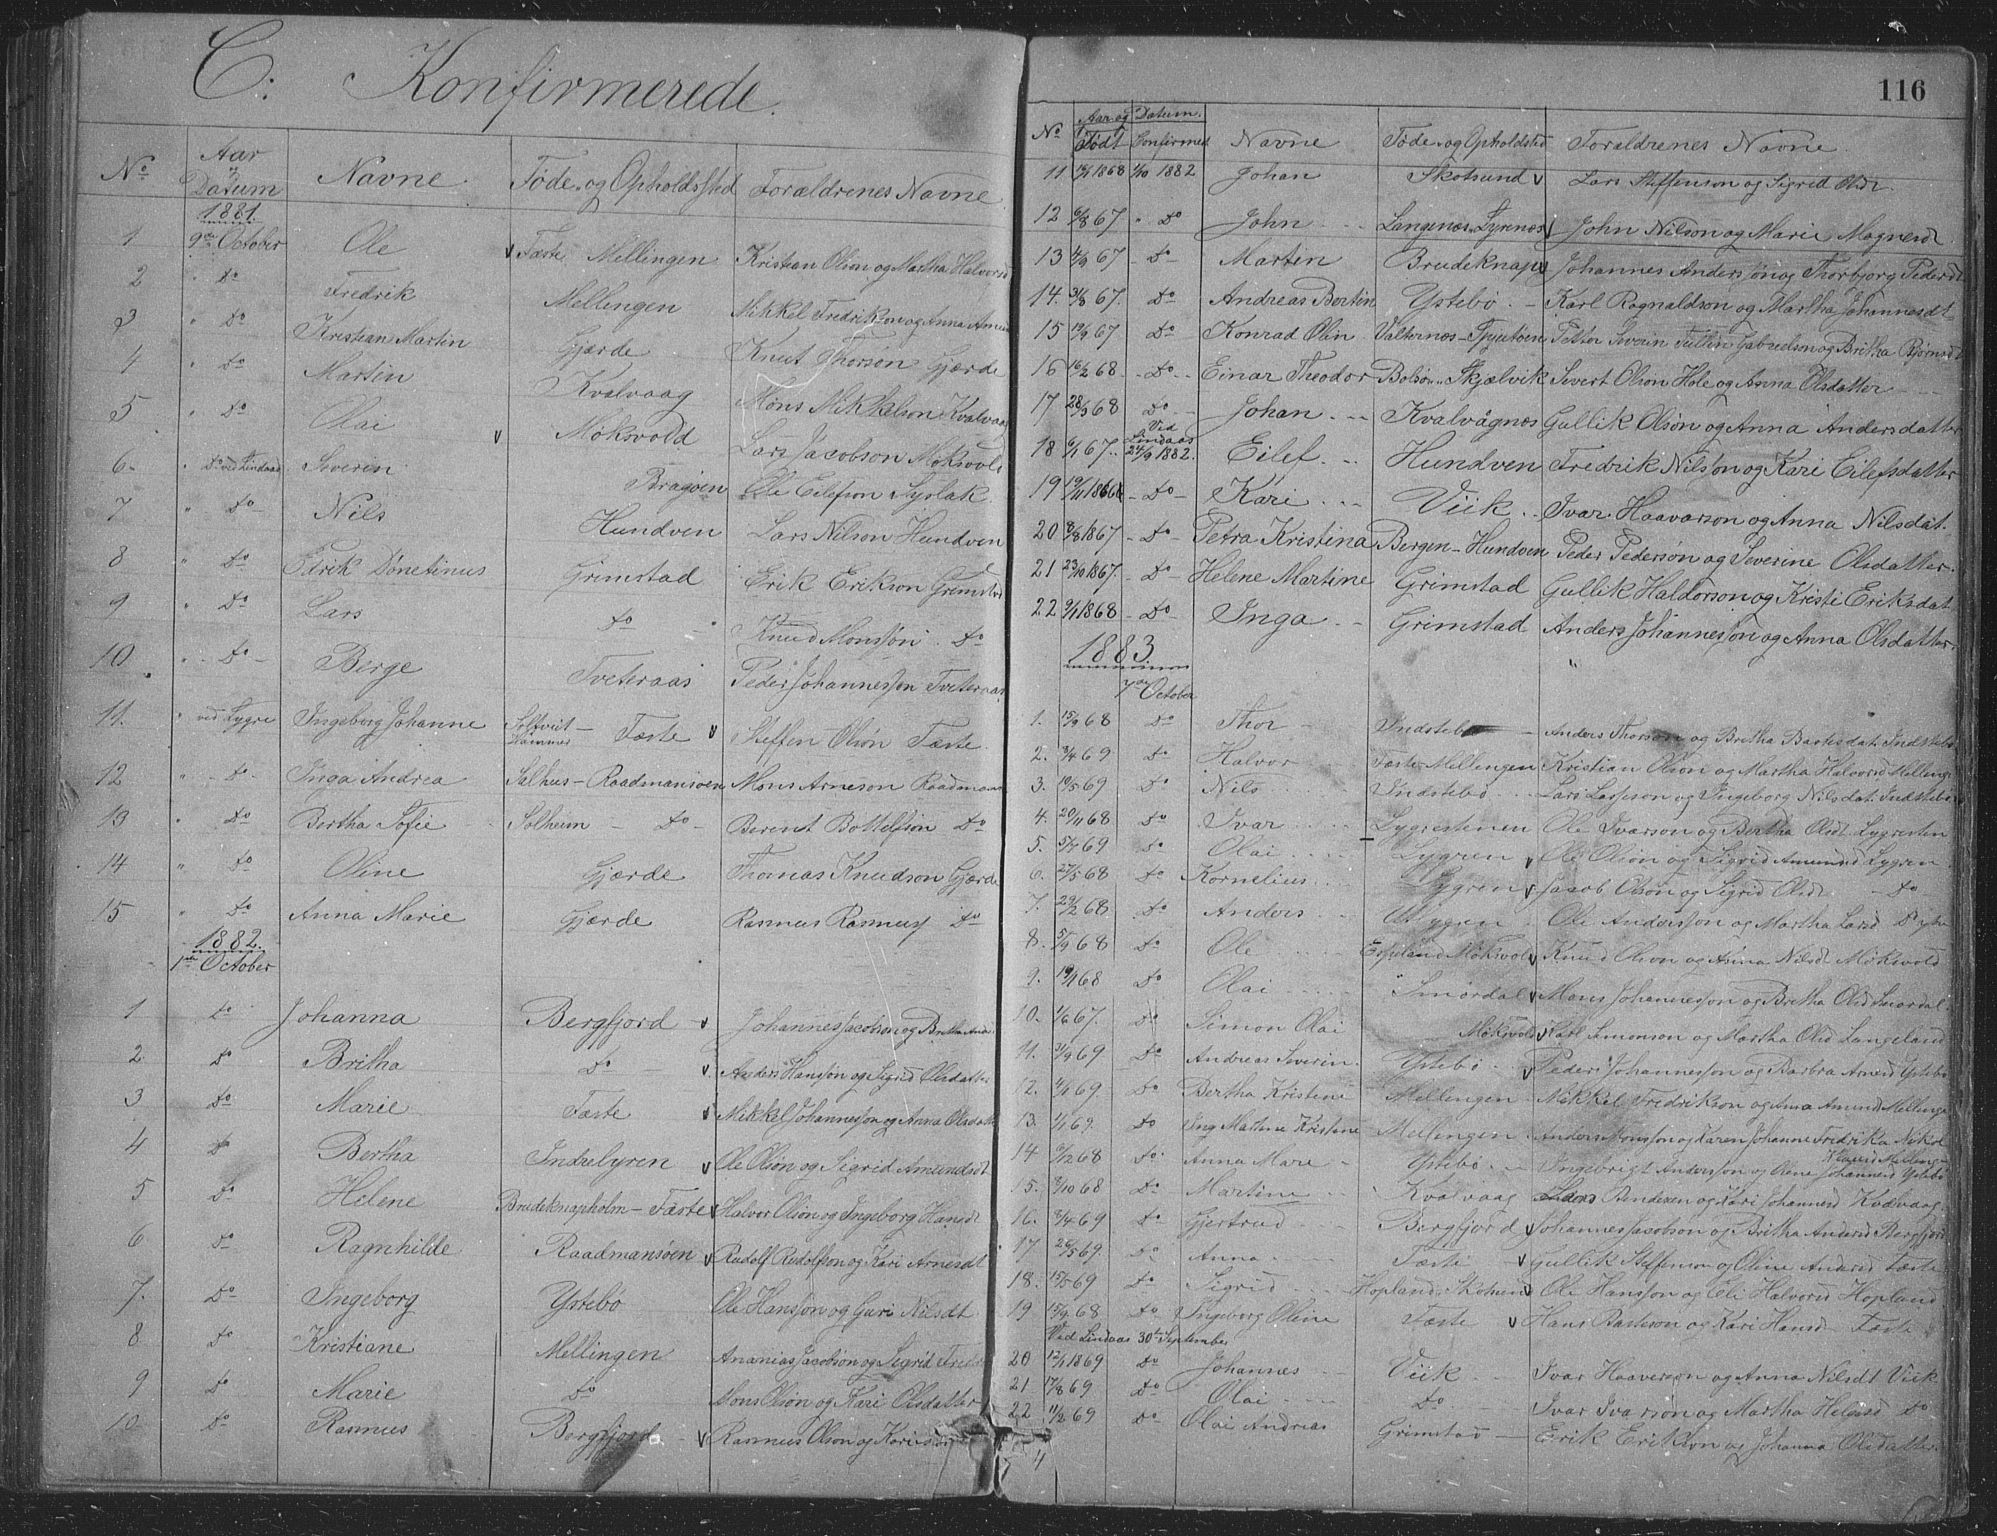 C: Konfirmerede.
No Aar og Datum Navne Føde og Opholdssted Forældrenes Navne
1881.
1 9de October Ole v Fæste Mellingen Kristian Olson og Martha Halvorsd
2 " Do Fredrik Mellingen Mikkel Fredrikson og Anna
3 " Do Kristian Martin Gjærde Knut Thorsøn Gjærde
4 " Do Martin Kvalvaag Mons Mikkelson Kvalvaag
5 " Do Olai v Møksvold Lars Jacobson Møksvold
6 " Do ved Lindaas Severin Bragøen Ole Eilefson Syslak
7 " Do Nils Hundven Lars Nilson Hundven
8 " Do Edrik Dønetinus Grimstad Erik Erikson Grimstad
9 " Do Lars Do Knud Monssøn Do
10 " Do Berge Tveteraas Peder Johannessøn Tveteraas
11. " ved Lygre Ingeborg Johanne Hammer Fæste v Steffen Olsøn Fæste.
12 " Do Inga Andrea Salhus - Raadmansøen Mons Arneson Raadmans
13 " Do Bertha Sofie Solheim - Do - Berent Bottelfson Do
14 " Do Oline Gjærde Thomas Knudson Gjærde
15 " Do Anna Marie Gjærde Rasmus Rasmuss Do
1882.
1ste October
1 Do Johanna Bergfjord v Johannes Jacobson og Britha
2 Do Britha Do v. Anders Hanssøn og Sigrid Olsdatter
3 Do Marie Fæste v Mikkel Johannesson og Anna Olsdatt
4 Do Bertha Indrelyren v Ole Olsøn og Sigrid Amundsdt
5 Do Helene Brudeknapholm - Fæste v Halvor Olsøn og Ingeborg Hansdt
6 Do Ragnhilde Raadmansøen v Rudolf Rudolfson og Kari Arnesdt
7. Do Ingeborg Ystebø Ole Hanssøn og Guri Nilsdt
8 Do Kristiane Mellingen Ananias Jacobson og Sigrid
9 Do Marie Do Mons Olsøn og Kari Olsdatter
10 Do Rasmus Bergfjord v Rasmus Olson og Kari
116
No Aar og Datum. Født Confirmed Navne Føde og Opholdsted Foraldrenes Navne.
11 1868 1/10 1882 Johan Skotsund v Lars Steffenson og Sigrid Olsdt.
12 6/8 67 " Do John Langenæs Lyrenæs v John Nilson og Marie Magnesdt.
13 4/9 67 - Do - Martin Brudeknap v Johannes Anderssøn og Thorbjorg Pedersdt
14. 31/8 67. Do Andreas Bertin Ystebø. - Karl Ragnaldson og Martha Johannesdt
15 19/9 67 Do Konrad Olin Valternes - Petter Severin Tullin Gabrielson og Britha Bjørnsdt
16 16/2 68. - Do - Einar Theodor Bolsøn - Skjælvik Sivert Olson Hole og Anna Olsdatter
17 28/3 68 Do - Johan Kvalvågnes Gullik Olsøn og Anna Andersdatter
18 6/1 67. Ved Lindaas 24/9 1882. Eilef Hundven Fredrik Nilssøn og Kari Eilefsdatter
19 19/11 1866 - Do - Kari Viik Ivar Haavarson og Anna Nilsdat.
20 8/8 1867 - Do - Petra Kristina Bergen - Hundven Peder Pedersøn og Severine Olsdatter
21 23/10 1867. - Do - Helene Martine Grimstad Gullik Haldorson og Kristi Eriksdat
22 9/1 1868 - Do - Inga Grimstad Anders Johannessøn og Anna Olsdatter.
1883
7de October
1. 15/9 68 Do Thor Indstebø Anders Thorson og Britha Bartesdat. Indstebø
2. 3/4 69 Do Halvor Fæste Mellingen Kristian Olson og Martha Halvorsd Mellinge
3. 10/5 69 Do Nils Indstebø Lars Larsson og Ingeborg Nilsdat. Indstebø
4. 20/11 68 Do Ivar Lygrestenen Ole Ivarson og Bertha Olsdt Lygresten
5. 5/4 69 Do Olai Lygren v Ole Olsøn og Sigrid Amundsd Lygren
6. 27/5 68 Do Kornelius Lygren v Jacob Olson og Sigrid Olsdt - Do -
7. 29/2 68 Do Anders Utlygren Ole Anderssøn og Martha Larsd
8. 5/9 68 Do Ole Espeland Møksvold v Knud Olson og Anna Nilsdt Møksvold
9. 19/1 68 Do Olai Smørdal v Mons Johannessøn og Bretha Olsd Smørdal
10. 1/6 67. Do Simon Olai Møksvold v Karl Simonson og Martha Olsd Langeland
11. 31/9 69 Do Andreas Severin. Ystebø v Peder Johannesson og Barbra Arnesd Ystebø
12. 4/1 69. Do Bertha Kristine Mellingen Mikkel Fredrikson og Anna Amundsd Mellinge
13. 1/1 69. Do Ing Martine Kristine Mellingen Anders Monssøn og Karen Johanne Fredrika
14 9/12 68 Do Anna Mare Ystebø Ingebrigt Anderssøn og Oline Johannesd Ystebø
15. 3/10 68 Do Martine Kvalvaag Lars Andersen og Kari Johannesd Kvalvaag
16. 3/4 69 Do Gjertrud Bergfjord v Johannes Jacobson og Britha Andersd Bergfjord
17. 26/5 69. Do Anna Fæste v Gullik Steffenson og Oline Andersd Fæste
18. 15/5 69 Do Sigrid Hopland, Skotsund v Ole Hansson og Eli Halvorsd Hopland
19 15/9 68 Do Ingeborg Oline Fæste v Hans Bartson og Kari Hansd Fæste
Ved Lindaas 30te September
20 12/1 1869 Do Johannes Viik Ivar Haaverson og Anna Nilsdt Viik
21 17/8 69 Do Olai Do Ivar Ivarson og Martha Helgesd Do
22 11/2 69 Do Olai Andrias Grimstad Erik Erikson og Johanna Olsdatter.